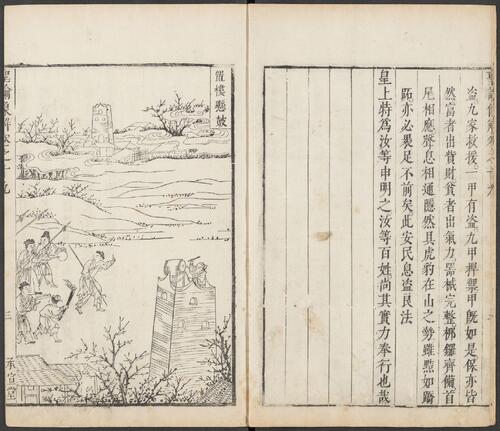 盜九家救援一甲有盜九甲捍禦甲既如是保亦皆
然富者出貲財貧者出氣力器械完整梆鑼齊備首
尾相應聲息相通隱然具虎豹在山之勢雖黠如蹻
跖亦必裹足不前矣此安民息盜良法
皇上特為汝等申明之汝等百姓尚其實力奉行也哉
置樓懸鼓
聖諭像解卷之十九
三
承宣堂